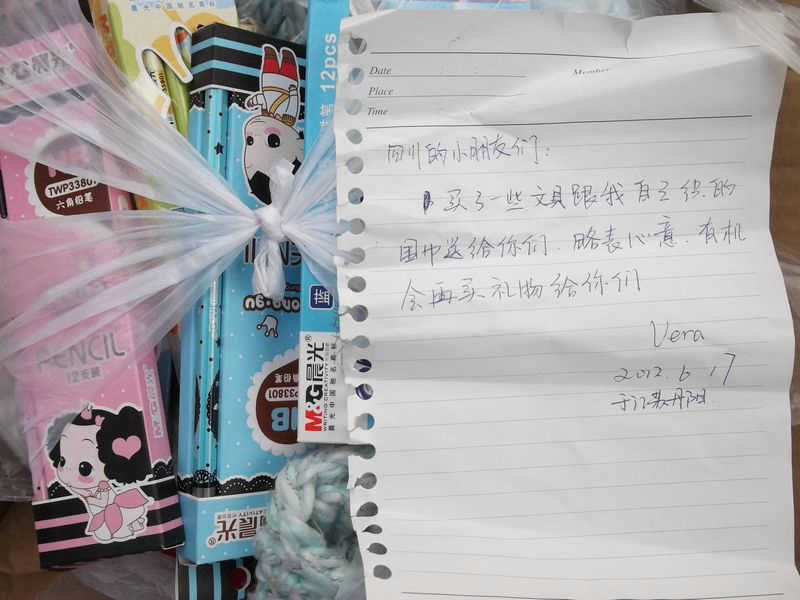 晨光
TWP33801
六角铅笔
PENCIL
12支装
M&G晨光
12pcs
蓝
M&G晨光
WRITING CREATIVITY
晨光
Date
Place
Time
Member
四川的小朋友们：
买了一些文具跟我自己织的
围巾送给你们，略表心意，有机
会再买礼物给你们
Vera
2012.6.17
于江苏丹阳